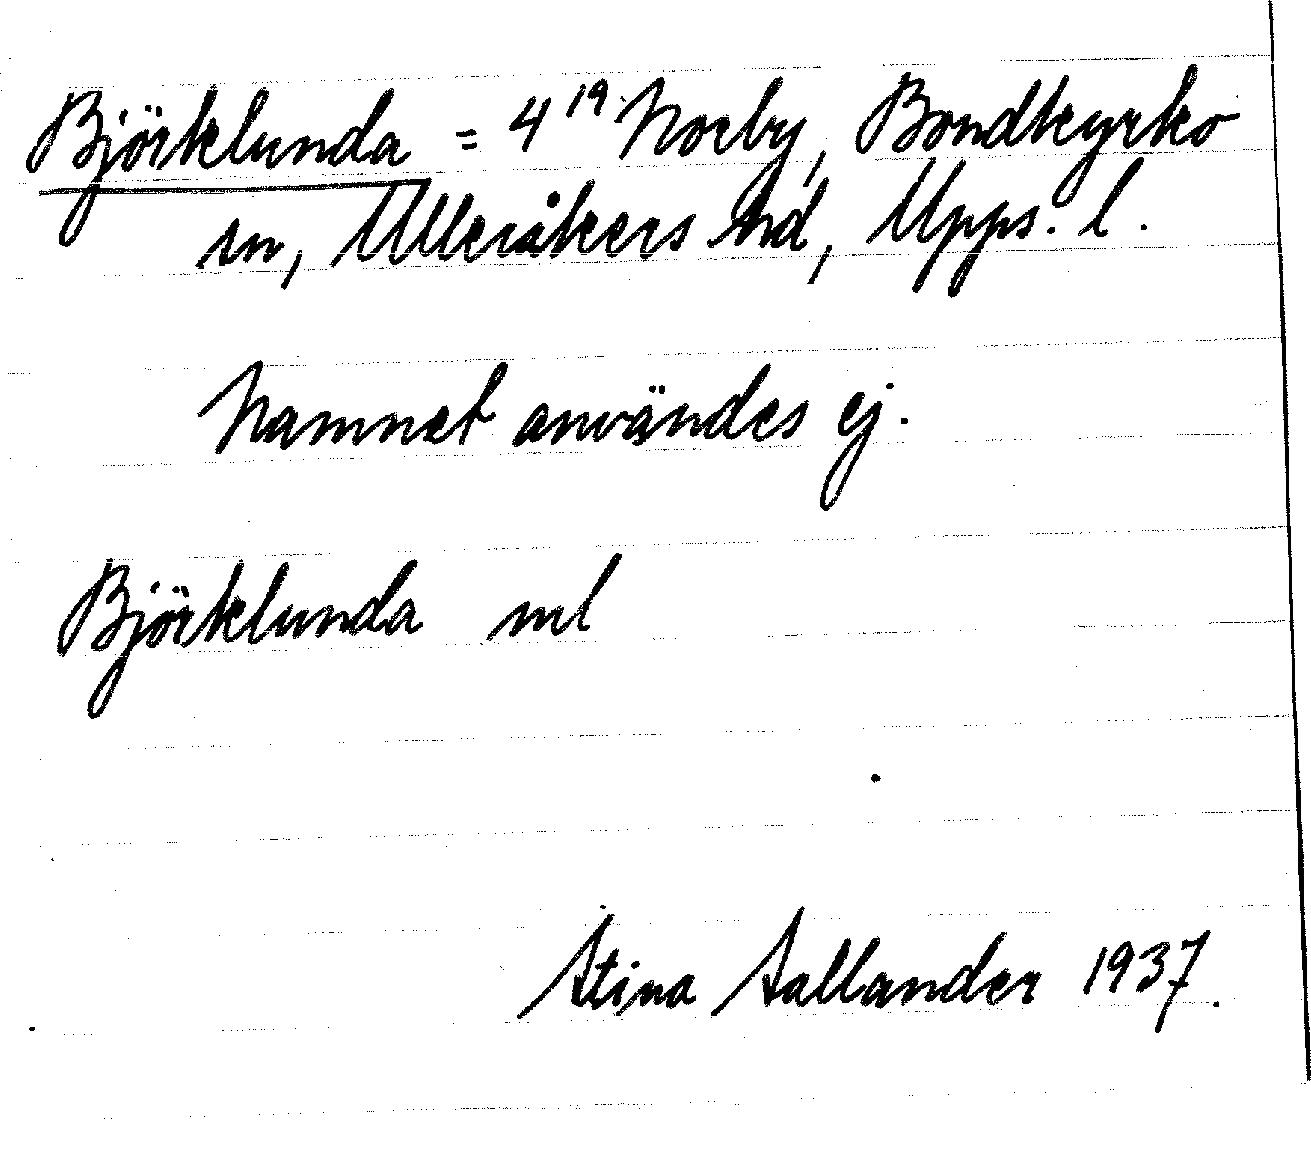 Björklunda = 4¹⁹ Norby, Bondkyrko
sn, Ulleråkers hd, Upps. l.
Namnet användes ej.
Björklunda ml
Stina Sallander 1937.